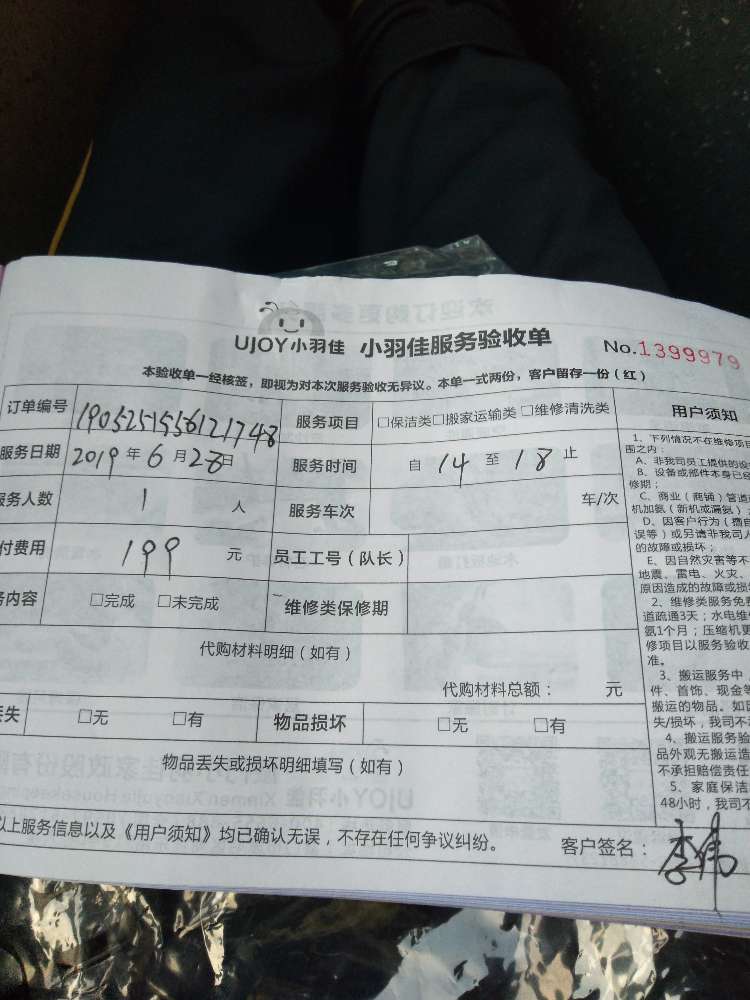 UJOY小羽佳 小羽佳服务验收单 No.1399979
本验收单一经核签，即视为对本次服务验收无异议。本单一式两份，客户留存一份（红）
订单编号 190525155612174 服务项目 □保洁类□搬家运输类 □维修清洗类
服务日期 2019 年 6 月 28 日 服务时间 自 14 至 18 止
服务人数 1 人 服务车次 车/次
付费用 199 元 员工工号（队长）
务内容 □完成 □未完成 维修类保修期
代购材料明细（如有）
代购材料总额： 元
丢失 □无 □有 物品损坏 □无 □有
物品丢失或损坏明细填写（如有）
以上服务信息以及《用户须知》均已确认无误，不存在任何争议纠纷。 客户签名：李伟
用户须知
1、下列情况不在维修项目
围之内：
A、非我司员工提供的设
B、设备或部件本身已经
修期；
C、商业（商铺）管道
机加氨（新机或漏氨）；
D、因客户行为（擅自
误等）或另请非我司人
的故障或损坏；
E、因自然灾害等不
地震、雷电、火灾、
原因造成的故障或损坏
2、维修类服务免费
道疏通3天；水电维
氨1个月；压缩机更
修项目以服务验收
准。
3、搬运服务中，
件、首饰、现金等
搬运的物品。如因
失/损坏，我司不
4、搬运服务验
品外观无搬运造
不承担赔偿责任
5、家庭保洁
48小时，我司不